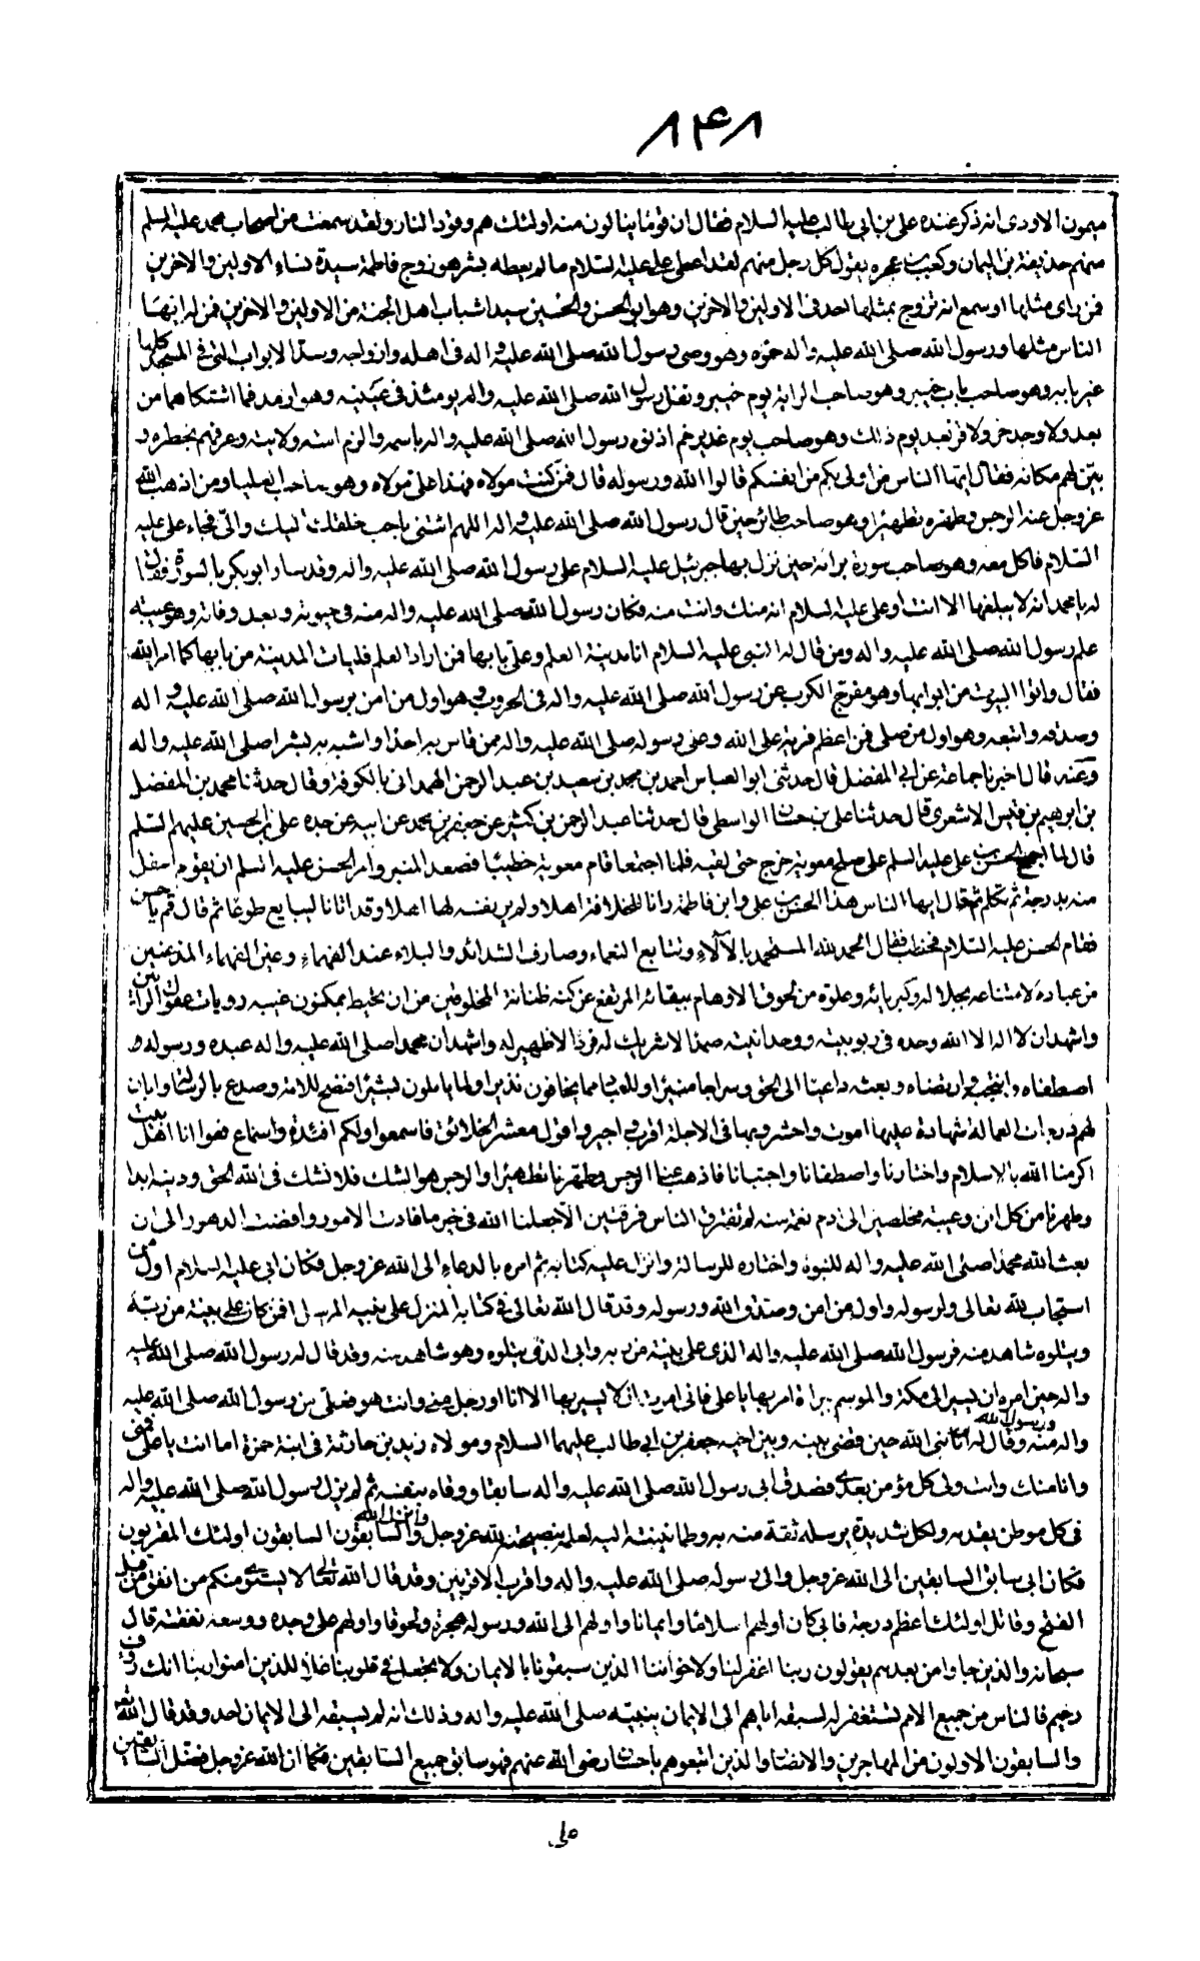 ٨٤٨
ميمون الاودى انه ذكر عنده على بن ابى طالب عليه السلام فقال ان قوما ينالون منه اولئك هم وقود النار ولقد سمعت من اصحاب محمد عليه السلم
منهم حذيفة بن اليمان وكعب بن عجره يقول كل رجل منهم لقد اعطى على عليه السلام ما لم يعطه بشر هو زوج فاطمة سيدة نساء الاولين والاخرين
فمن راى مثلها او سمع انه تزوج بمثلها احد فى الاولين والاخرين وهو ابو الحسن والحسين سيدا شباب اهل الجنة من الاولين والاخرين فمن له ايها
الناس مثلها ورسول الله صلى الله عليه واله حموه وهو وصى رسول الله صلى الله عليه واله فى اهله وازواجه وسد الابواب التى فى المسجد كلها
غير بابه وهو صاحب باب خيبر وهو صاحب الراية يوم خيبر وتفل رسول الله صلى الله عليه واله يومئذ فى عينيه وهو ارمد فما اشتكاهما من
بعد ولا وجد حر ولا قر بعد يوم ذلك وهو صاحب يوم غدير خم اذ نوه رسول الله صلى الله عليه واله باسمه والزم امته ولايته وعرفهم بخطره و
بين لهم مكانه فقال ايها الناس من اولى بكم من انفسكم قالوا الله ورسوله قال فمن كنت مولاه فهذا على مولاه وهو صاحب العبا ومن اذهب الله
عز وجل عنه الرجس وطهره تطهيرا وهو صاحب طائر حين قال رسول الله صلى الله عليه واله اللهم ائتنى باحب خلقك اليك والى فجاء على عليه
السلام فاكل معه وهو صاحب سورة براءة حين نزل بها جبرئيل عليه السلام على رسول الله صلى الله عليه واله وقد سار ابو بكر بالسورة فقال
له يا محمد انه لا يبلغها الا انت او على عليه السلام انه منك وانت منه فكان رسول الله صلى الله عليه واله منه فى حيوته وبعد وفاته وهو عيبة
علم رسول الله صلى الله عليه واله ومن قال له النبى عليه السلام انا مدينة العلم وعلى بابها فمن اراد العلم فليات المدينة من بابها كما امر الله
فقال واتوا البيوت من ابوابها وهو مفرج الكرب عن رسول الله صلى الله عليه واله فى الحروب وهو اول من امن برسول الله صلى الله عليه و اله
وصدقه واتبعه وهو اول من صلى فمن اعظم فرية على الله وعلى رسوله صلى الله عليه واله ممن قاس به احدا او اشبه به بشرا صلى الله عليه واله
وعنه قال اخبرنا جماعة عن ابى المفضل قال حدثنى ابو العباس احمد بن محمد بن سعيد بن عبد الرحمن الهمدانى بالكوفة وقال حدثنا محمد بن المفضل
بن ابرهيم بن قيس الاشعرى قال حدثنا على بن حسان الواسطى قال حدثنا عبد الرحمن بن كثير عن جعفر بن محمد عن ابيه عن جده على بن الحسين عليهم السلم
قال لما اجمع الحسن بن على عليه السلم على صلح معوية خرج حتى لقيه فلما اجتمعا قام معوية خطيبا فصعد المنبر وامر الحسن عليه السلم ان يقوم اسفل
منه بدرجة ثم تكلم فقال ايها الناس هذا الحسن بن على وابن فاطمة رانا للخلافة اهلا ولم ير نفسه لها اهلا وقد اتانا ليبايع طوعا ثم قال قم يا حسن
فقام الحسن عليه السلام فخطب فقال الحمد لله المستحمد بالآلاء وتتابع النعماء وصارف الشدائد والبلاء عند الفهماء وغير الفهماء المذعنين
من عباده لامتناعه بجلاله وكبريائه وعلوه من لحوق الاوهام ببقائه المرتفع عن كنه ظنانة المخلوقين من ان تحيط بمكنون غيبه رويات عقول الرائين
واشهد ان لا اله الا الله وحده فى ربوبيته ووحدانيته صمدا لا شريك له فردا لا ظهير له واشهد ان محمدا صلى الله عليه واله عبده ورسوله
اصطفاه وانتجبه وارتضاه وبعثه داعيا الى الحق وسراجا منيرا وللعباد مما يخافون نذيرا ولما ياملون بشيرا فنصح للامة وصدع بالرسالة وابان
لهم درجات العمالة شهادة عليها اموت واحشر وبها فى الاجلة اقرب واحبر واقول معشر الخلائق فاسمعوا ولكم افئدة واسماع فعوا انا اهل بيت
اكرمنا الله بالاسلام واختارنا واصطفانا واجتبانا فاذهب عنا الرجس وطهرنا تطهيرا والرجس هو الشك فلا نشك فى الله الحق ودينه ابدا
وطهرنا من كل افن وعيبة مخلصين الى ادم نعمة منه لم تفترق الناس فرقتين الا جعلنا الله فى خيرهما فادت الامور وافضت الدهور الى ان
بعث الله محمدا صلى الله عليه واله للنبوة واختاره للرسالة وانزل عليه كتابه ثم امره بالدعاء الى الله عز وجل فكان ابى عليه السلام اول من
استجاب لله تعالى ولرسوله واول من امن وصدق الله ورسوله وقد قال الله تعالى فى كتابه المنزل على نبيه المرسل افمن كان على بينة من ربه
ويتلوه شاهد منه فرسول الله صلى الله عليه واله الذى على بينة من ربه وابى الذى يتلوه وهو شاهد منه وقد قال له رسول الله صلى الله عليه
واله حين امره ان يسير الى مكة والموسم ببراة امر بها يا على فانى امرت ان لا يسير بها الا انا او رجل منى وانت هو فعلى من رسول الله صلى الله عليه
واله منه ورسول الله منه وقال له نبى الله حين قضى بينه وبين اخيه جعفر بن ابى طالب عليهما السلام ومولاه زيد بن حارثة فى ابنة حمزة اما انت يا على فمنى
وانا منك وانت ولى كل مؤمن بعدى فصدق ابى رسول الله صلى الله عليه واله سابقا ووقاه بنفسه ثم لم يزل رسول الله صلى الله عليه واله
فى كل موطن يقدمه ولكل شديدة يرسله ثقة منه به وطمانينة اليه لعلمه بنصيحته لله عز وجل والسابقون السابقون اولئك المقربون
فكان ابى سابق السابقين الى الله عز وجل والى رسوله صلى الله عليه واله واقرب الاقربين وقد قال الله تعالى لا يستوى منكم من انفق من قبل
الفتح وقاتل اولئك اعظم درجة فابى كان اولهم اسلاما وايمانا واولهم الى الله ورسوله هجرة ولحوقا واولهم على وجده ووسعه نفقة قال
سبحانه والذين جاؤا من بعدهم يقولون ربنا اغفر لنا ولاخواننا الذين سبقونا بالايمان ولا تجعل فى قلوبنا غلا للذين امنوا ربنا انك رؤف
رحيم فالناس من جميع الامم تستغفر له لسبقه اياهم الى الايمان بنبيه صلى الله عليه واله وذلك انه لم يسبقه الى الايمان احد وقد قال الله تعالى
والسابقون الاولون من المهاجرين والانصار والذين اتبعوهم باحسان رضى الله عنهم فهو سابق جميع السابقين فكما ان الله عز وجل فضل السابقين